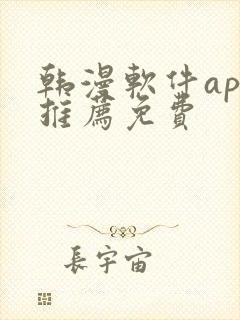 韩漫軟件ap
推薦免費
長宇宙